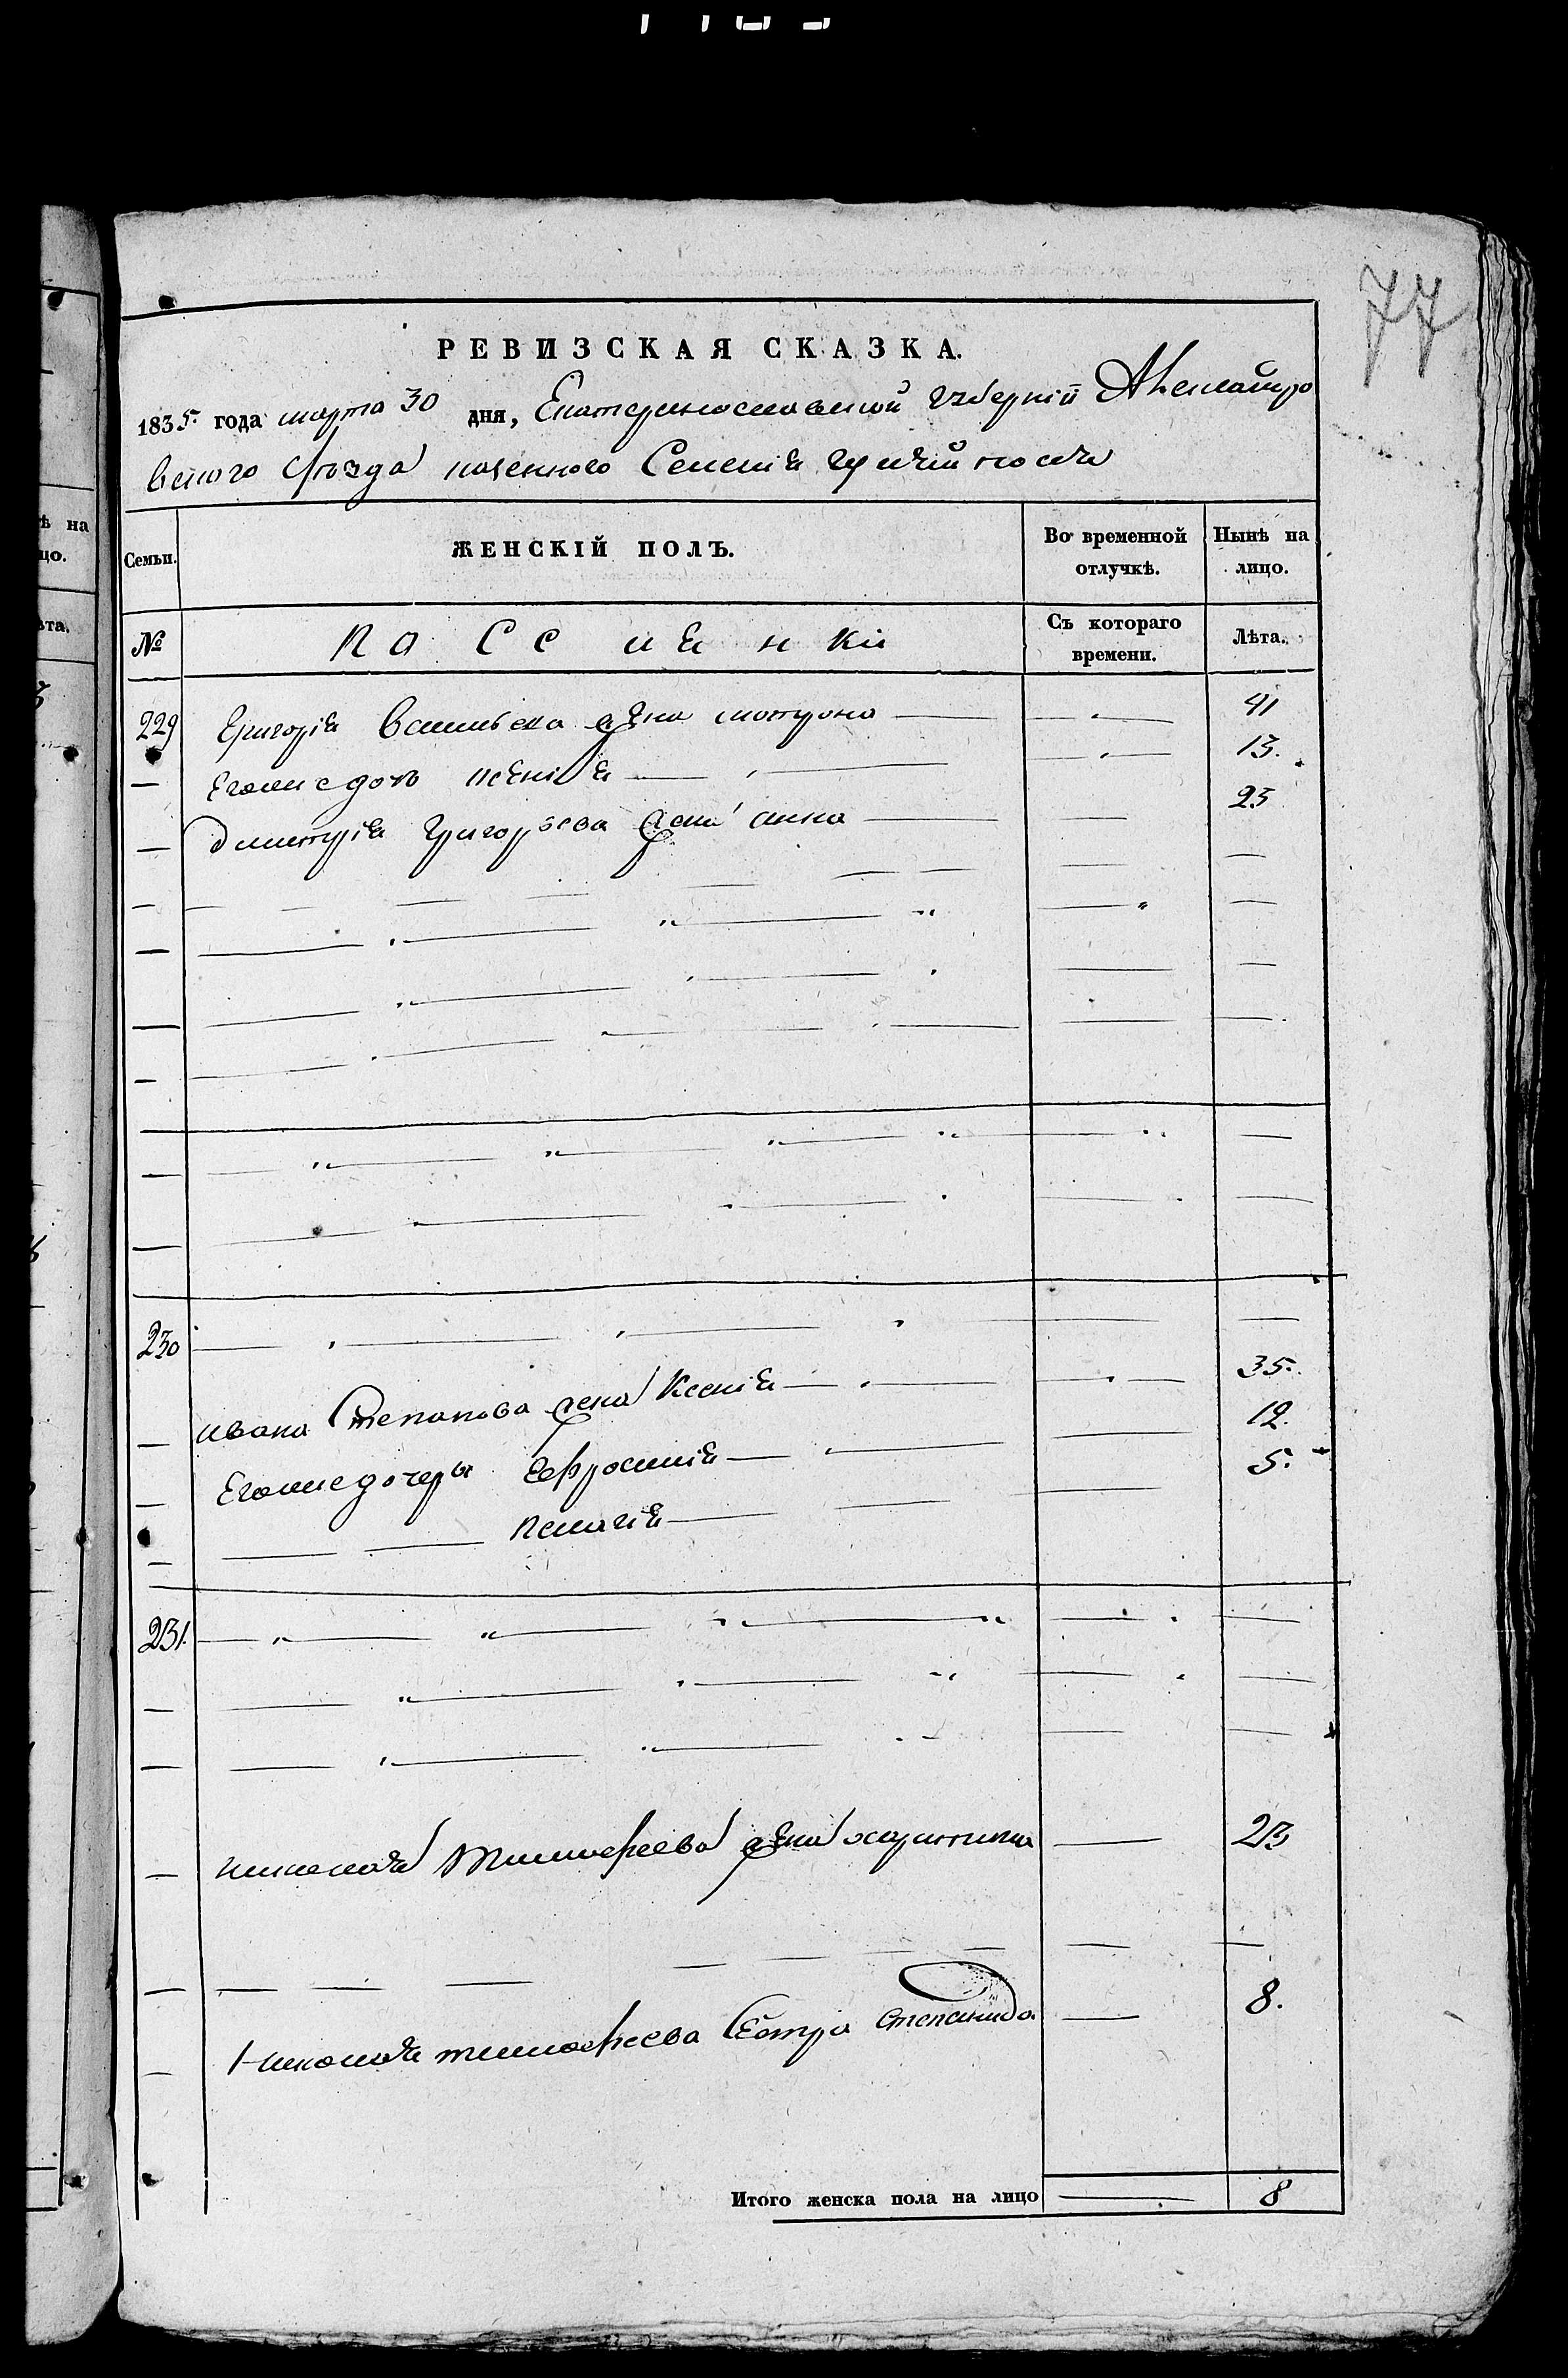 77
РЕВИЗСКАЯ СКАЗКА.
1835 года марта 30 дня, Екатеринославской губерніи Александро
вского уѣзда казенного Селенія
Семьи. ЖЕНСКІЙ ПОЛЪ. Во временной отлучкѣ. Нынѣ на лицо.
№ Съ котораго времени. Лѣта.
229 Григорія Васильева жена мотрона — 41
— Егоже дочь ксенія — 13.
— Дмитрія Григорьева жена анна — 25
230
— ивана Степанова жена Ксенія — 35.
— Егоже дочеры Ефросинія — 12.
— — Пелагія — 5.
231.
— николая Тимофеева жена харитина — 23
— Николая тимофеева Сестра степанида — 8.
Итого женска пола на лицо — 8
ѣ на
цо.
ѣта.